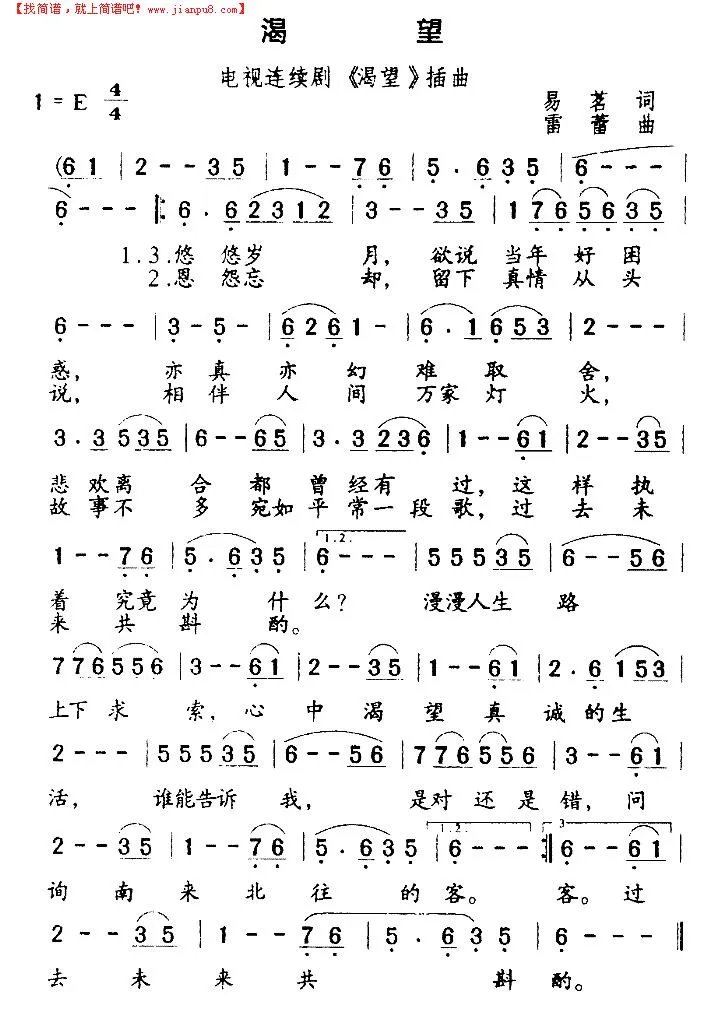 【找简谱，就上简谱吧！www.jianpu8.com】
渴 望
电视连续剧《渴望》插曲
1 = E 4/4
易 茗 词
雷 蕾 曲
(6 1 | 2 - - 3 5 | 1 - - 7 6 | 5 · 6 3 5 | 6 - - - |
6 - - - |: 6 · 6 2 3 1 2 | 3 - - 3 5 | 1 7 6 5 6 3 5 |
1.3.悠 悠岁 月， 欲说 当年 好 困
2.恩 怨忘 却， 留下 真情 从 头
6 - - - | 3 - 5 - | 6 2 6 1 - | 6 · 1 6 5 3 | 2 - - - |
惑， 亦 真 亦 幻 难 取 舍，
说， 相 伴 人 间 万家 灯 火，
3 · 3 5 3 5 | 6 - - 6 5 | 3 · 3 2 3 6 | 1 - - 6 1 | 2 - - 3 5 |
悲 欢离 合 都 曾 经有 过， 这 样 执
故 事不 多， 宛如 平 常一 段 歌， 过 去 未
1 - - 7 6 | 5 · 6 3 5 | 1.2. 6 - - - | 5 5 5 3 5 | 6 - - 5 6 |
着 究竟 为 什 么？ 漫漫人生 路
来 共 斟 酌。
7 7 6 5 5 6 | 3 - - 6 1 | 2 - - 3 5 | 1 - - 6 1 | 2 · 6 1 5 3 |
上下 求 索， 心 中 渴 望 真 诚 的 生
2 - - - | 5 5 5 3 5 | 6 - - 5 6 | 7 7 6 5 5 6 | 3 - - 6 1 |
活， 谁能告诉 我， 是对 还 是 错， 问
2 - - 3 5 | 1 - - 7 6 | 5 · 6 3 5 | 1.2. 6 - - - :| 3 6 - - 6 1 |
询 南 来 北 往 的 客。 客。 过
2 - - 3 5 | 1 - - 7 6 | 5 · 6 3 5 | 6 - - - ||
去 未 来 共 斟 酌。